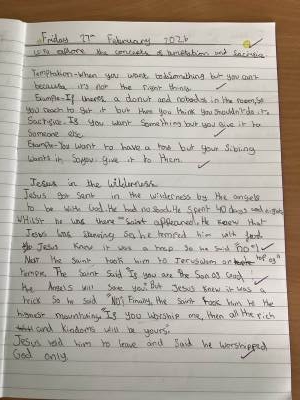 Friday 27th February 2026
LO: To explore the concepts of temptation and Sacrifise.
Temptation-When you want to do Something but you can't
because it's not the right thing.
Example-If theres a donut and nobodys in the room, So
you reach to get it but then you think you Shouldn't do it.
Sacrifise-If you want Something but you give it to
Someone else.
Example-You want to have a toy but your Sibling
wants it, So you give it to them.
Jesus in the Wilderness
Jesus got Sent in the wilderness by the angels
to be with God. He had no food. He Spent 40 days and nights
Whilst he was there "Saint" appeared. He knew that
Jesus was Starving So, he temted him with food
Jesus Knew it was a trap So he Said "no"!
Next the Saint took him to Jerusalem on top of a
temple. The Saint Said "If you are the Son of God,
the Angels will Save you". But Jesus Knew it was a
trick So he Said "No"! Finally, the Saint took him to the
highest mountain. "If you Worship me, then all the rich
and Kindoms will be yours".
Jesus told him to leave and Said he worshipped
God only